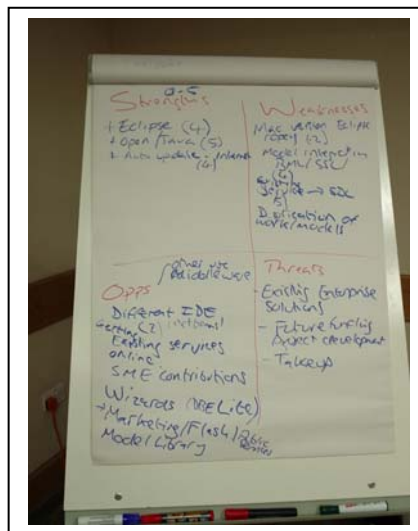 0-5
Strengths
+ Eclipse (4)
+ Open/Java (5)
+ Auto update - Internet
(4)
Weaknesses
Mac version Eclipse
ropey (2)
Model interaction
BML/SSL
Service → SDL
Duplication of
work/models
other use
middleware
Opps
Different IDE
Getting (2)
Existing services
online
SME contributions
Wizards (DBE Lite)
Marketing/Flash/Public
Model Library
Threats
- Existing Enterprise
solutions
- Future funding
project development
- Takeup